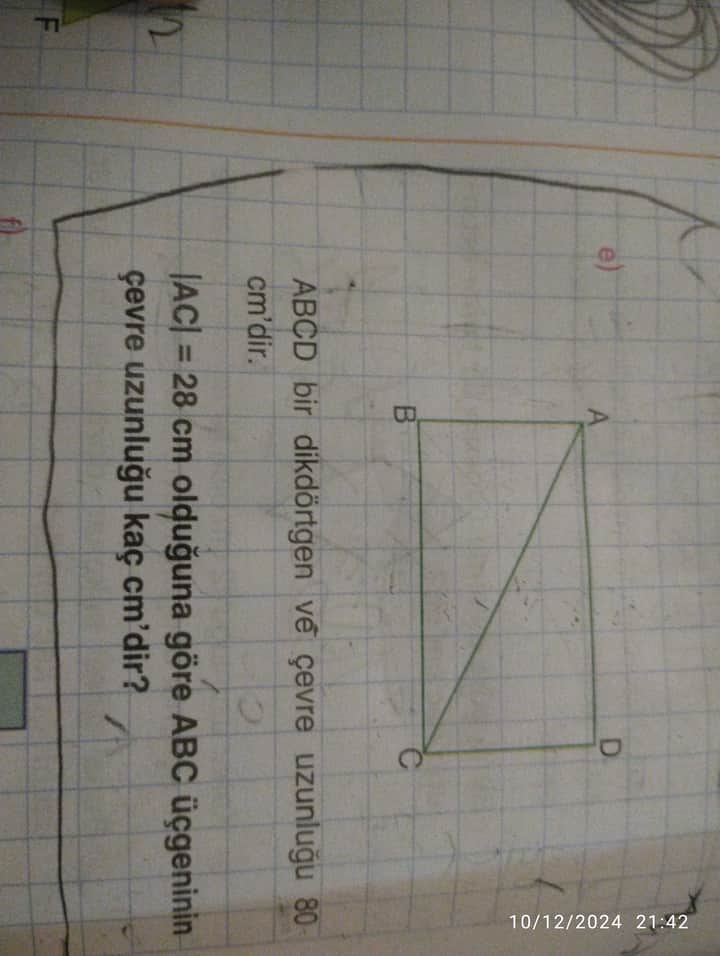 e)
A
D
B
C
ABCD bir dikdörtgen ve çevre uzunluğu 80
cm'dir.
|AC| = 28 cm olduğuna göre ABC üçgeninin
çevre uzunluğu kaç cm'dir?
f)
F
10/12/2024 21:42